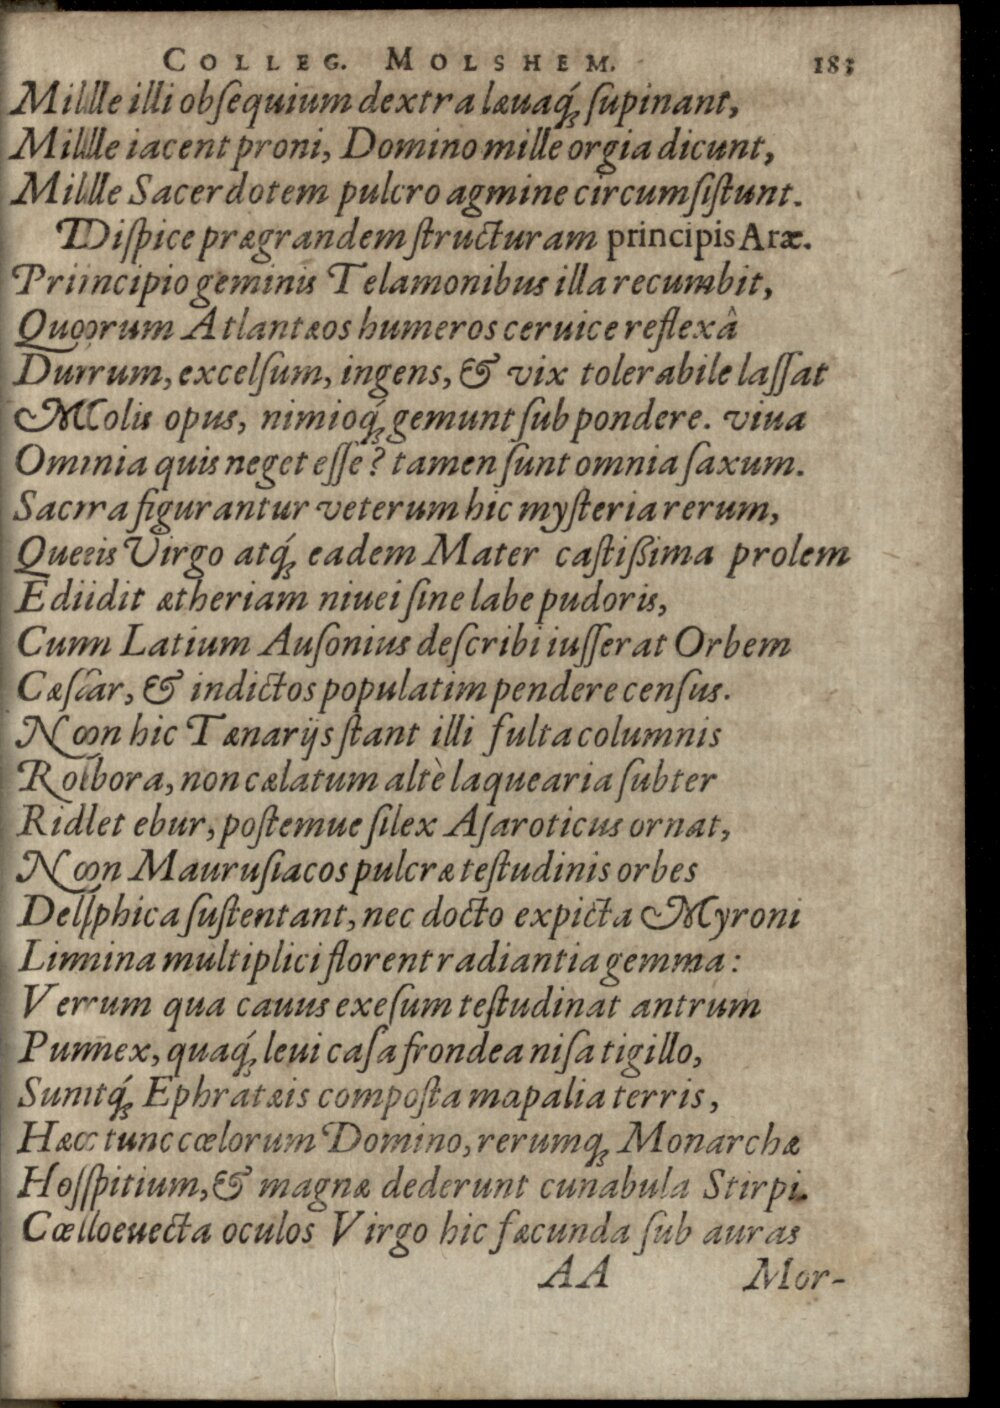 COLLEG. MOLSHEM. 183
Mille illi obſequium dextra læuaq́; ſupinant,
Mille iacent proni, Domino mille orgia dicunt,
Mille Sacerdotem pulcro agmine circumſiſtunt.
Diſpice prægrandem ſtructuram principis Aræ.
Principio geminis Telamonibus illa recumbit,
Quorum Atlantæos humeros ceruice reflexâ
Durum, excelſum, ingens, & vix tolerabile laſſat
Molis opus, nimioq́; gemunt ſub pondere. viua
Omnia quis neget eſſe? tamen ſunt omnia ſaxum.
Sacra figurantur veterum hic myſteria rerum,
Queis Virgo atq́; eadem Mater caſtißima prolem
Edidit ætheriam niuei ſine labe pudoris,
Cum Latium Auſonius deſcribi iuſſerat Orbem
Cæſar, & indictos populatim pendere cenſus.
Non hic Tænarijs ſtant illi fulta columnis
Robora, non cælatum altè laquearia ſubter
Ridet ebur, poſtemue ſilex Aſaroticus ornat,
Non Mauruſiacos pulcræ teſtudinis orbes
Delphica ſuſtentant, nec docto expicta Myroni
Limina multiplici florent radiantia gemma:
Verum qua cauus exeſum teſtudinat antrum
Pumex, quaq́; leui caſa frondea niſa tigillo,
Sumtq́; Ephratæis compoſta mapalia terris,
Hæc tunc cœlorum Domino, rerumq; Monarchæ
Hoſpitium, & magnæ dederunt cunabula Stirpi.
Cœlo euecta oculos Virgo hic fæcunda ſub auras
AA Mor-